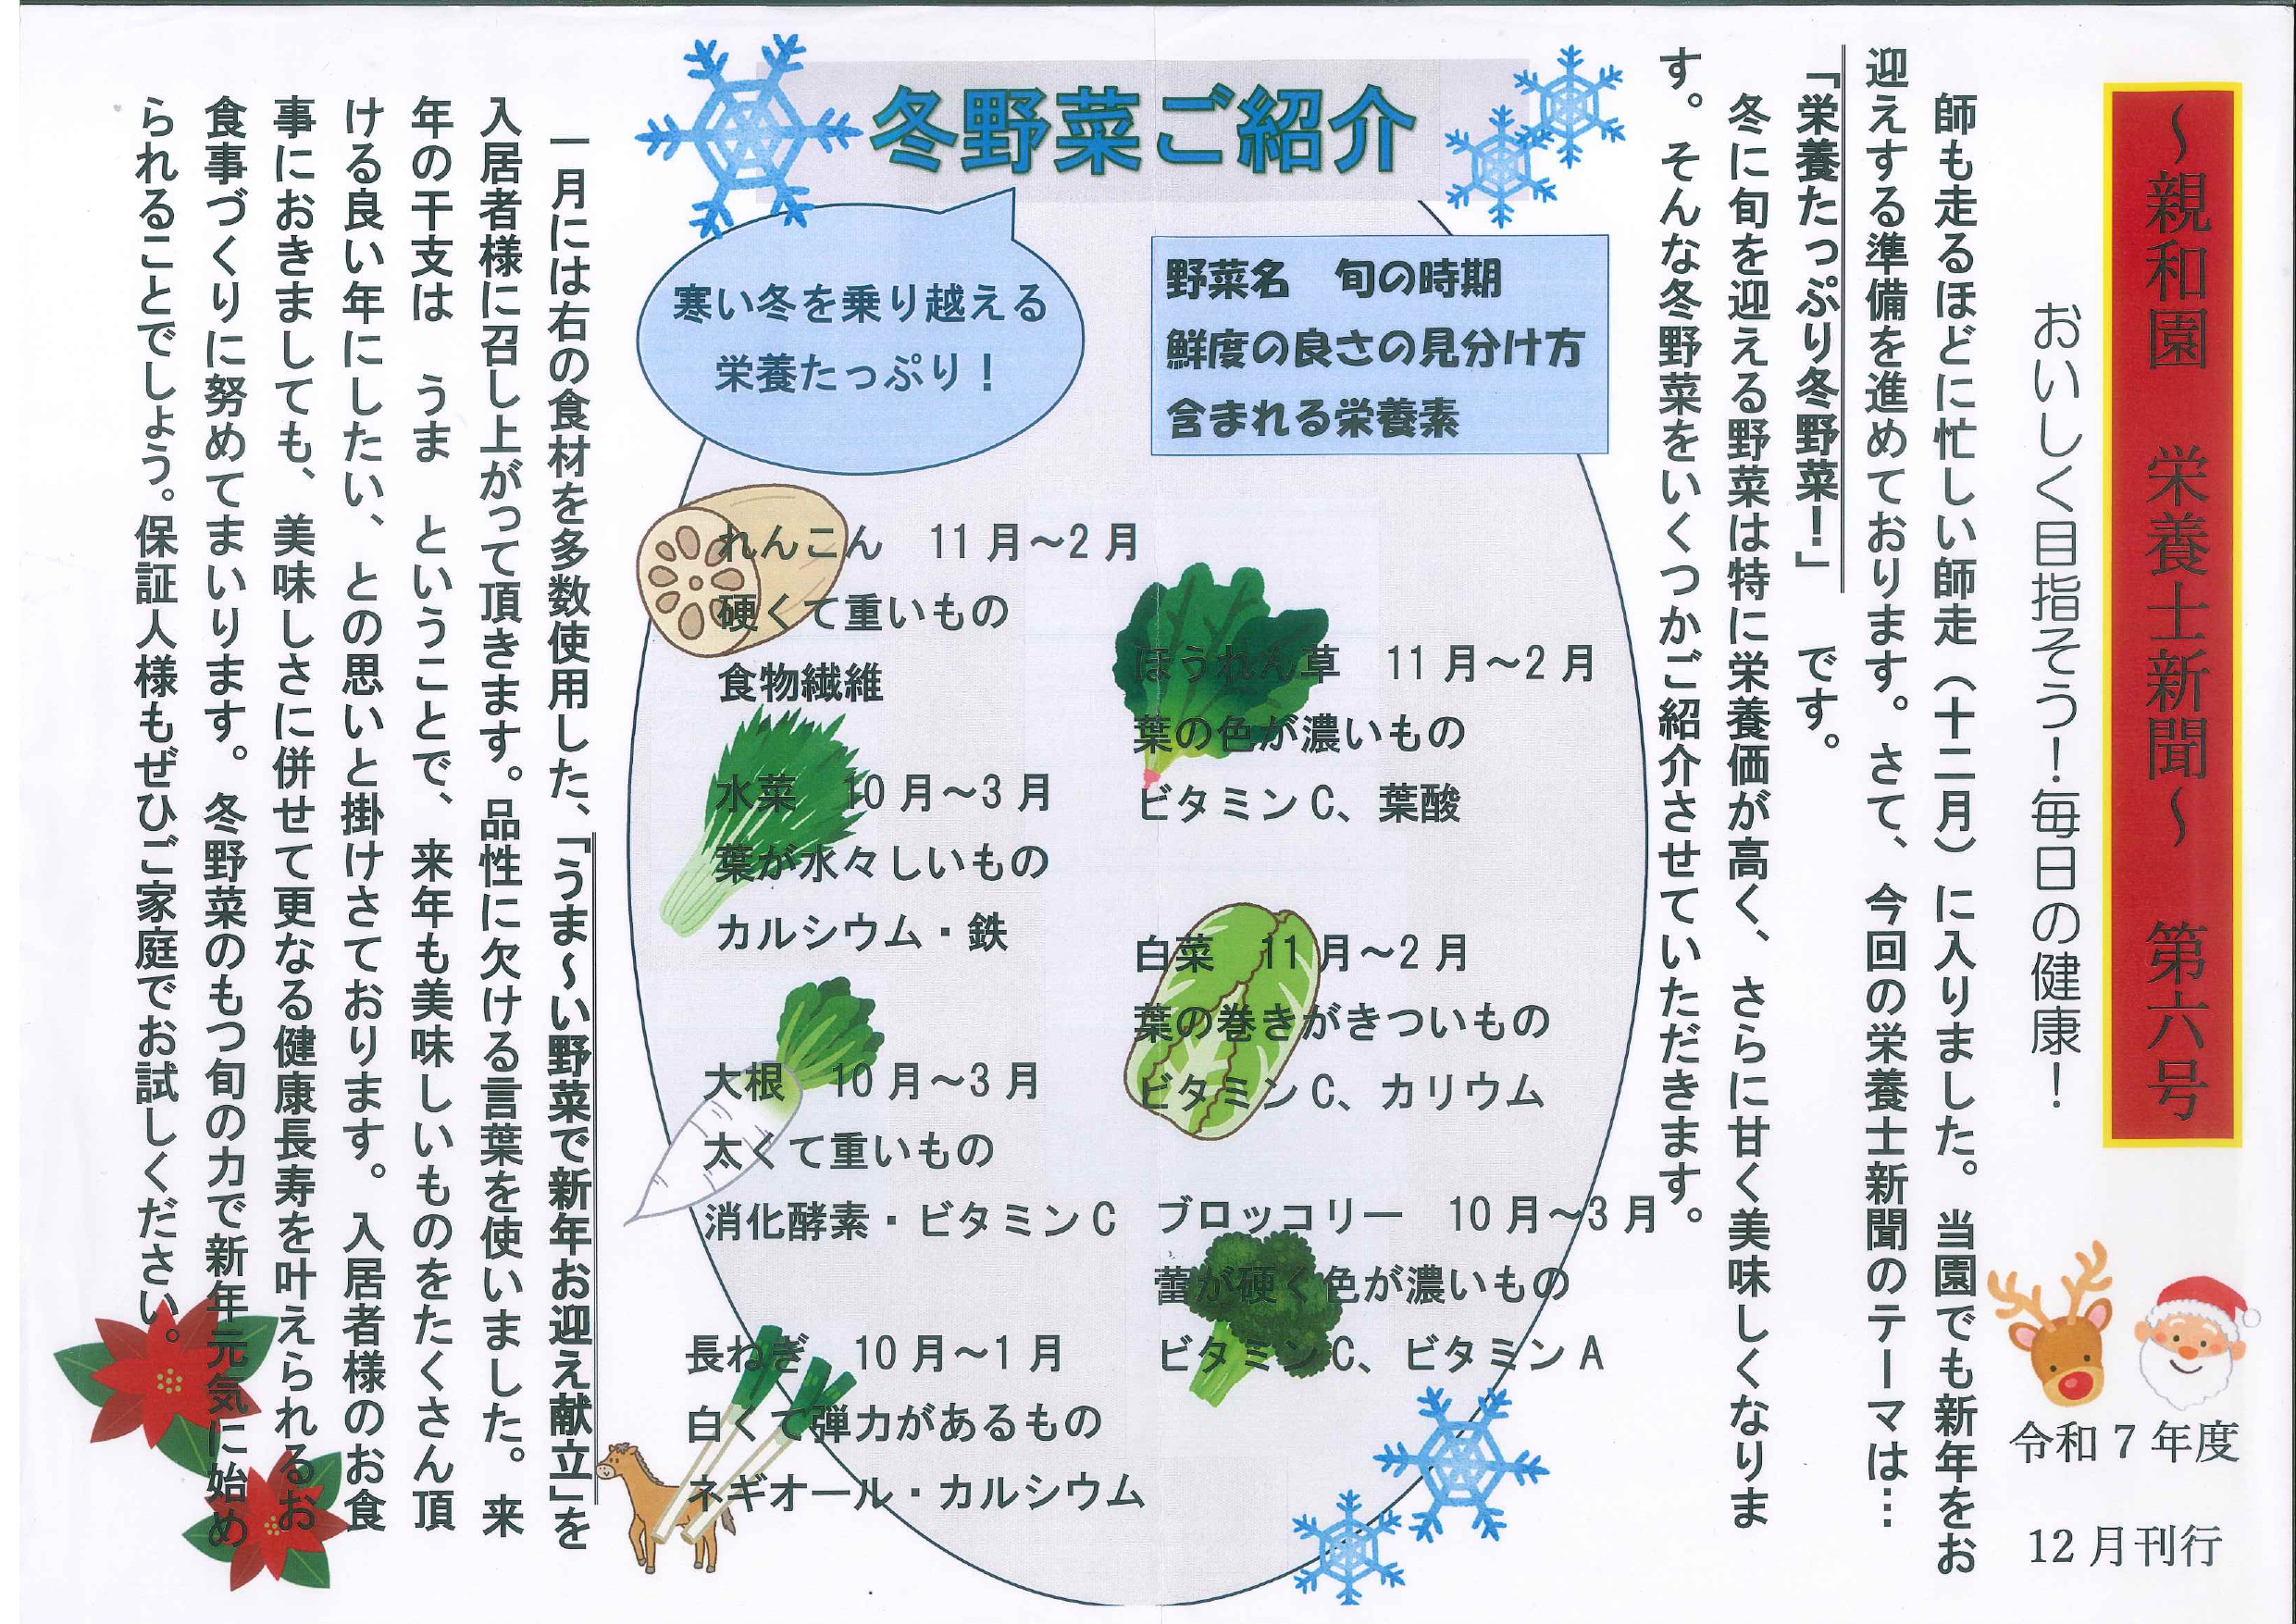 ～親和園　栄養士新聞～　第六号
おいしく目指そう！毎日の健康！
令和7年度
12月刊行
師も走るほどに忙しい師走（十二月）に入りました。当園でも新年をお
迎えする準備を進めております。さて、今回の栄養士新聞のテーマは…
「栄養たっぷり冬野菜！」　です。
冬に旬を迎える野菜は特に栄養価が高く、さらに甘く美味しくなりま
す。そんな冬野菜をいくつかご紹介させていただきます。
冬野菜ご紹介
寒い冬を乗り越える
栄養たっぷり！
野菜名　旬の時期
鮮度の良さの見分け方
含まれる栄養素
れんこん　11月～2月
硬くて重いもの
食物繊維
水菜　10月～3月
葉が水々しいもの
カルシウム・鉄
大根　10月～3月
太くて重いもの
消化酵素・ビタミンC
長ねぎ　10月～1月
白くて弾力があるもの
ネギオール・カルシウム
ほうれん草　11月～2月
葉の色が濃いもの
ビタミンC、葉酸
白菜　11月～2月
葉の巻きがきついもの
ビタミンC、カリウム
ブロッコリー　10月～3月
蕾が硬く色が濃いもの
ビタミンC、ビタミンA
一月には右の食材を多数使用した、「うま～い野菜で新年お迎え献立」を
入居者様に召し上がって頂きます。品性に欠ける言葉を使いました。来
年の干支は　うま　ということで、来年も美味しいものをたくさん頂
ける良い年にしたい、との思いと掛けさております。入居者様のお食
事におきましても、美味しさに併せて更なる健康長寿を叶えられるお
食事づくりに努めてまいります。冬野菜のもつ旬の力で新年元気に始め
られることでしょう。保証人様もぜひご家庭でお試しください。